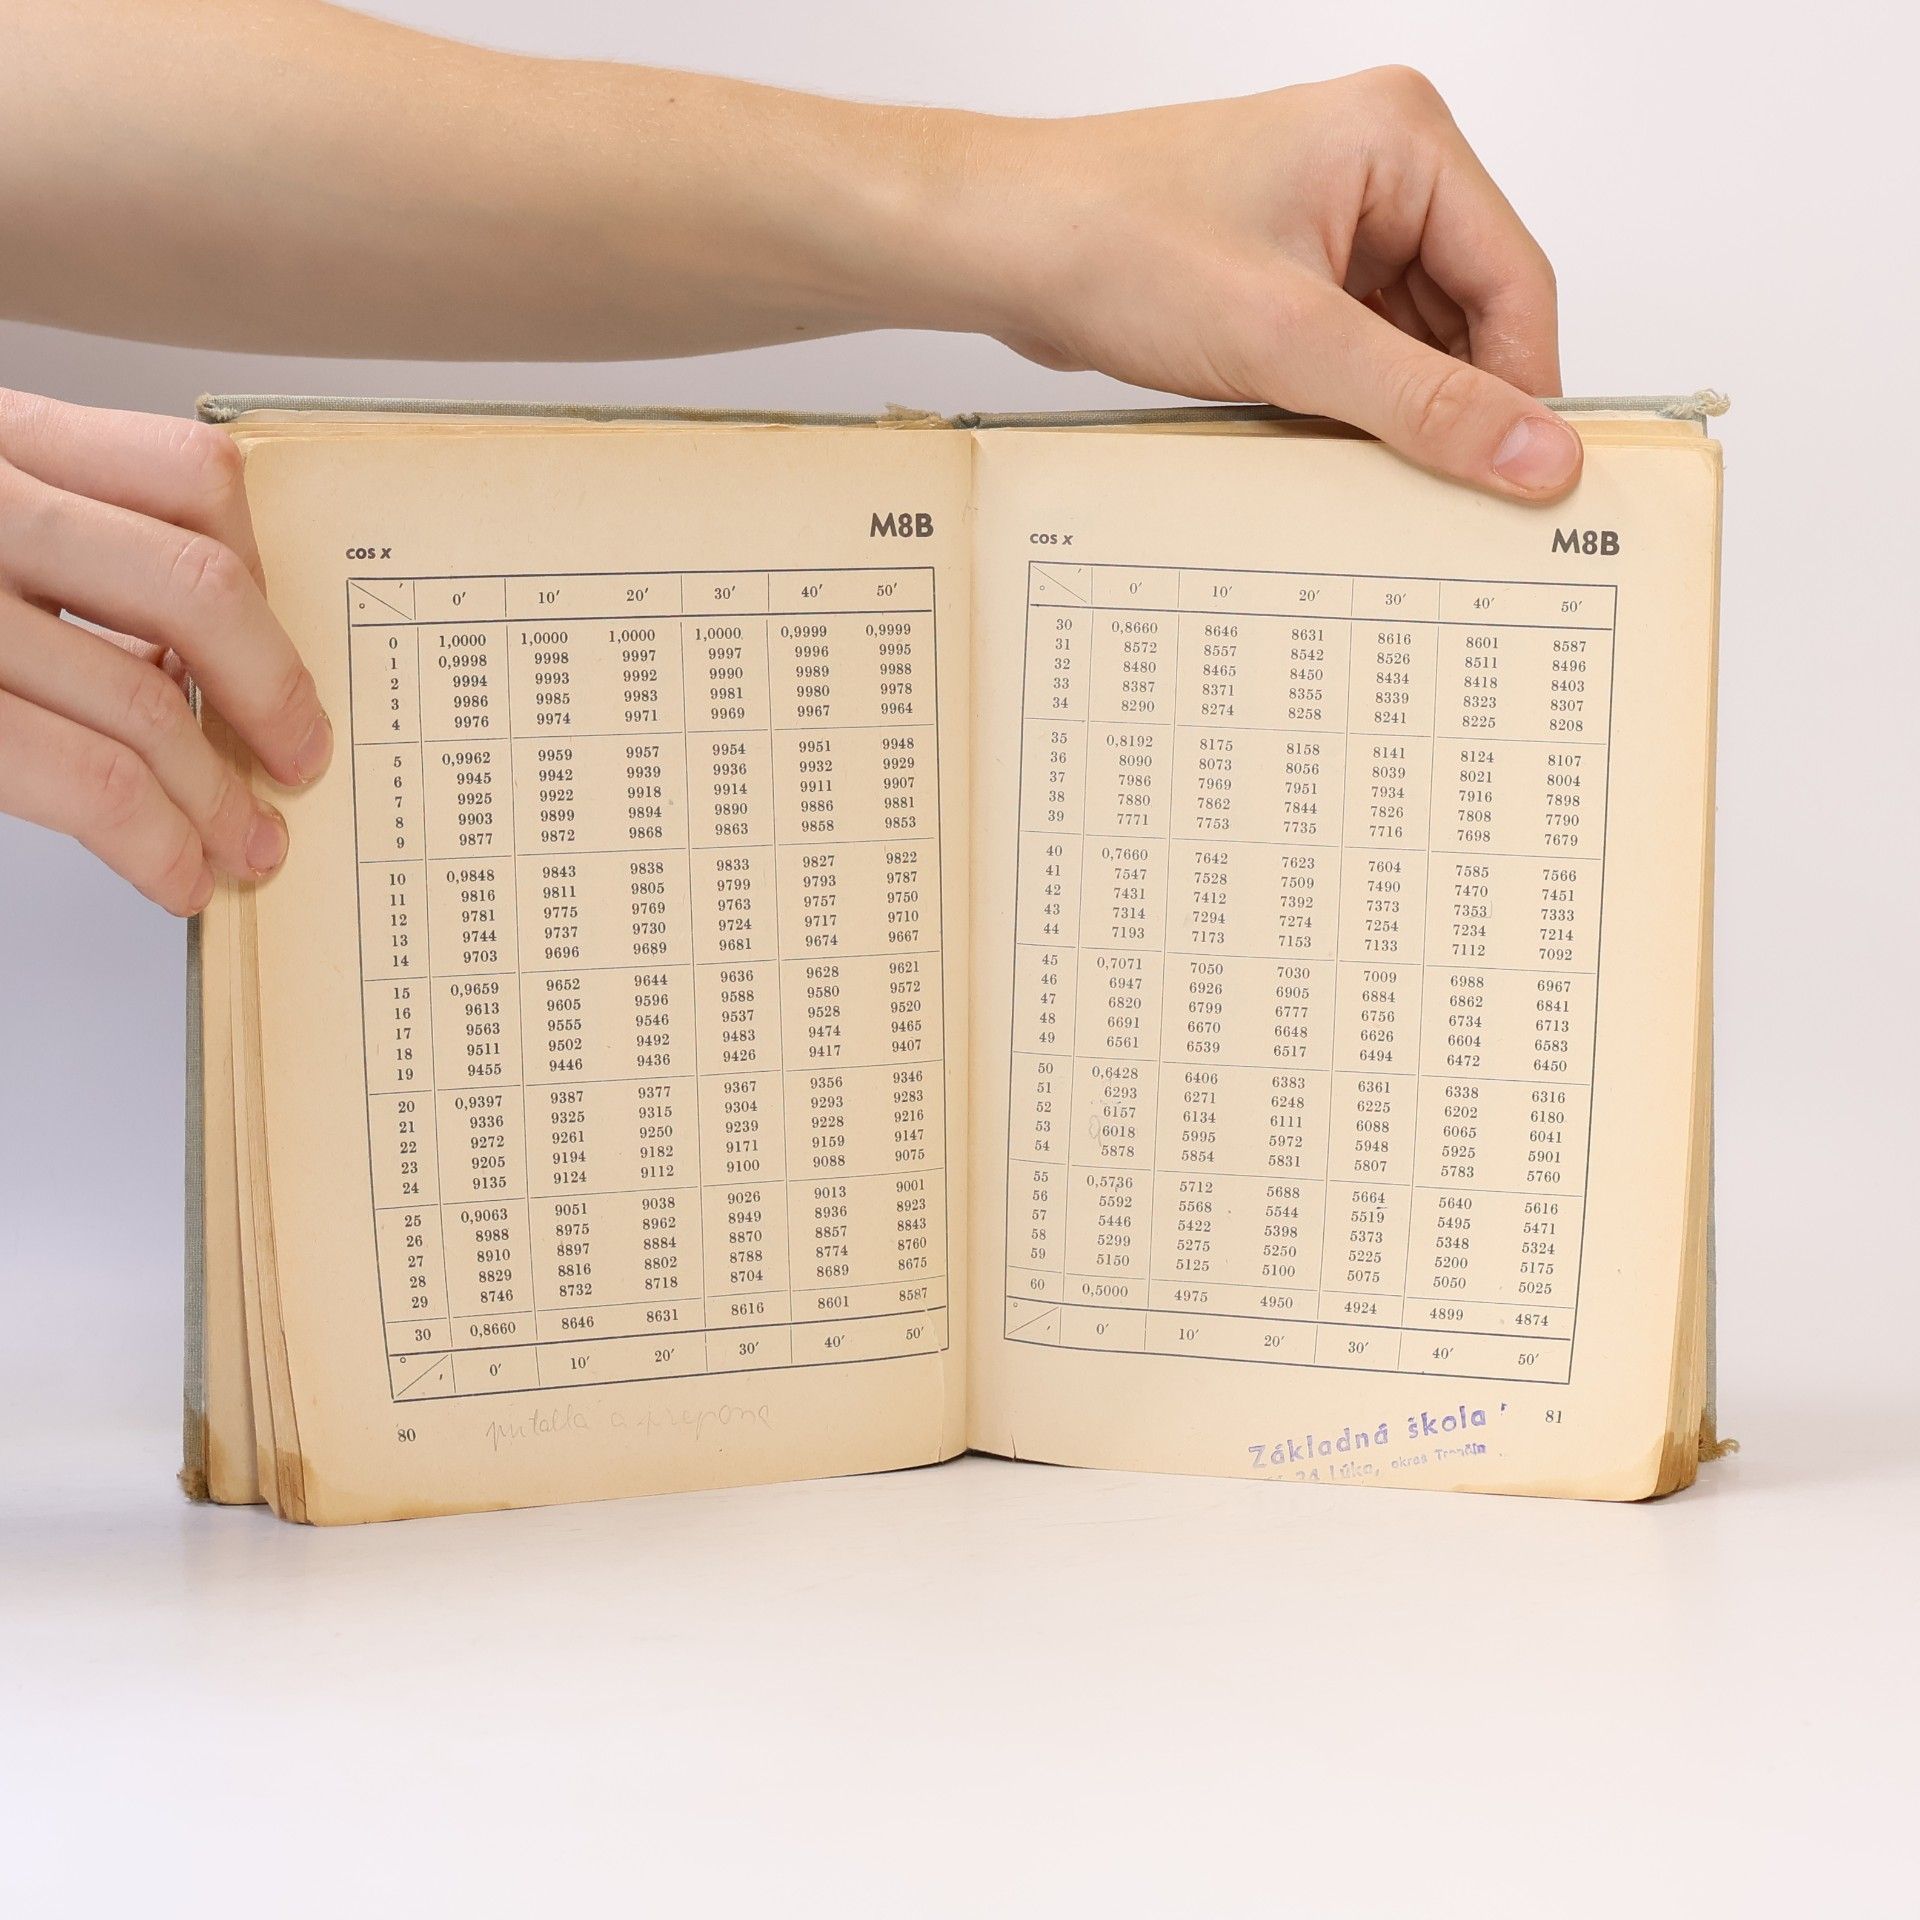 M8B
cos x
° ′ 0′ 10′ 20′ 30′ 40′ 50′
0 1,0000 1,0000 1,0000 1,0000 0,9999 0,9999
1 0,9998 9998 9997 9997 9996 9995
2 9994 9993 9992 9990 9989 9988
3 9986 9985 9983 9981 9980 9978
4 9976 9974 9971 9969 9967 9964
5 0,9962 9959 9957 9954 9951 9948
6 9945 9942 9939 9936 9932 9929
7 9925 9922 9918 9914 9911 9907
8 9903 9899 9894 9890 9886 9881
9 9877 9872 9868 9863 9858 9853
10 0,9848 9843 9838 9833 9827 9822
11 9816 9811 9805 9799 9793 9787
12 9781 9775 9769 9763 9757 9750
13 9744 9737 9730 9724 9717 9710
14 9703 9696 9689 9681 9674 9667
15 0,9659 9652 9644 9636 9628 9621
16 9613 9605 9596 9588 9580 9572
17 9563 9555 9546 9537 9528 9520
18 9511 9502 9492 9483 9474 9465
19 9455 9446 9436 9426 9417 9407
20 0,9397 9387 9377 9367 9356 9346
21 9336 9325 9315 9304 9293 9283
22 9272 9261 9250 9239 9228 9216
23 9205 9194 9182 9171 9159 9147
24 9135 9124 9112 9100 9088 9075
25 0,9063 9051 9038 9026 9013 9001
26 8988 8975 8962 8949 8936 8923
27 8910 8897 8884 8870 8857 8843
28 8829 8816 8802 8788 8774 8760
29 8746 8732 8718 8704 8689 8675
30 0,8660 8646 8631 8616 8601 8587
° ′ 0′ 10′ 20′ 30′ 40′ 50′
80
a prepona
M8B
cos x
° ′ 0′ 10′ 20′ 30′ 40′ 50′
30 0,8660 8646 8631 8616 8601 8587
31 8572 8557 8542 8526 8511 8496
32 8480 8465 8450 8434 8418 8403
33 8387 8371 8355 8339 8323 8307
34 8290 8274 8258 8241 8225 8208
35 0,8192 8175 8158 8141 8124 8107
36 8090 8073 8056 8039 8021 8004
37 7986 7969 7951 7934 7916 7898
38 7880 7862 7844 7826 7808 7790
39 7771 7753 7735 7716 7698 7679
40 0,7660 7642 7623 7604 7585 7566
41 7547 7528 7509 7490 7470 7451
42 7431 7412 7392 7373 7353 7333
43 7314 7294 7274 7254 7234 7214
44 7193 7173 7153 7133 7112 7092
45 0,7071 7050 7030 7009 6988 6967
46 6947 6926 6905 6884 6862 6841
47 6820 6799 6777 6756 6734 6713
48 6691 6670 6648 6626 6604 6583
49 6561 6539 6517 6494 6472 6450
50 0,6428 6406 6383 6361 6338 6316
51 6293 6271 6248 6225 6202 6180
52 6157 6134 6111 6088 6065 6041
53 6018 5995 5972 5948 5925 5901
54 5878 5854 5831 5807 5783 5760
55 0,5736 5712 5688 5664 5640 5616
56 5592 5568 5544 5519 5495 5471
57 5446 5422 5398 5373 5348 5324
58 5299 5275 5250 5225 5200 5175
59 5150 5125 5100 5075 5050 5025
60 0,5000 4975 4950 4924 4899 4874
° ′ 0′ 10′ 20′ 30′ 40′ 50′
81
Základná škola
Lúka, okres Trenčín